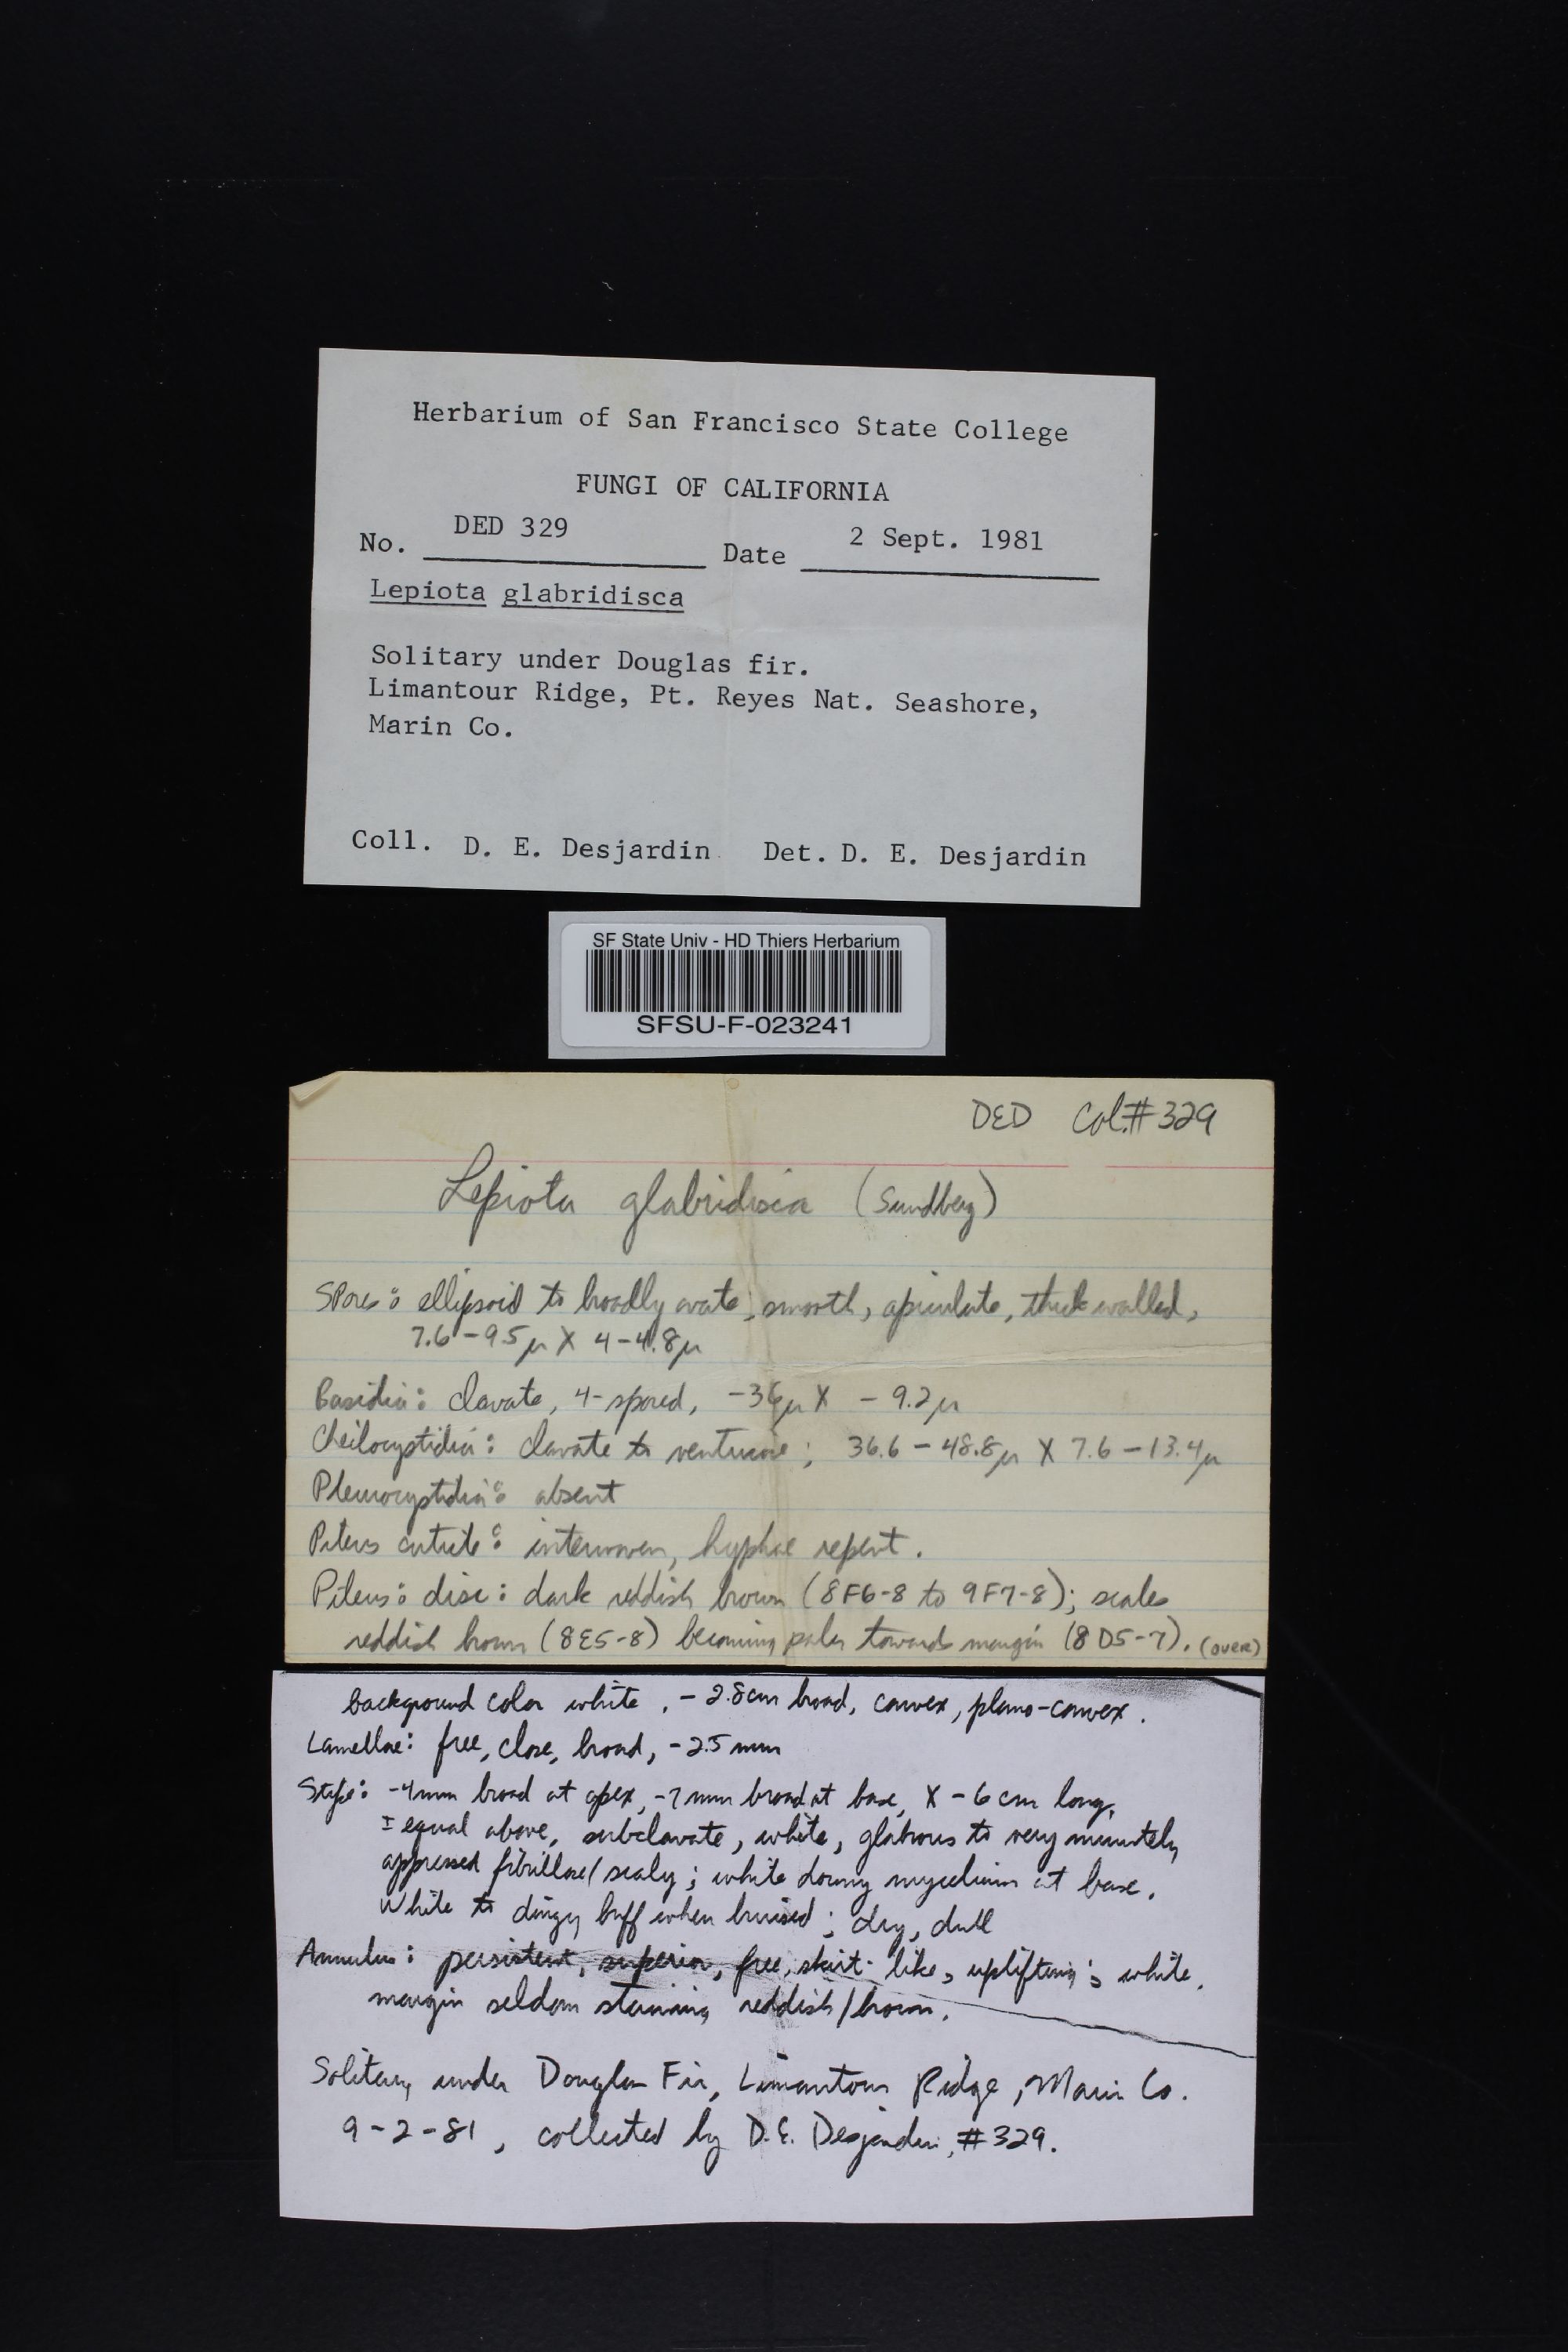 Herbarium of San Francisco State College
FUNGI OF CALIFORNIA
No. DED 329 Date 2 Sept. 1981
Lepiota glabridisca
Solitary under Douglas fir.
Limantour Ridge, Pt. Reyes Nat. Seashore,
Marin Co.
Coll. D. E. Desjardin Det. D. E. Desjardin
SF State Univ - HD Thiers Herbarium
SFSU-F-023241
DED Col.# 329
Lepiota glabridisca (Sundberg)
Spores: ellipsoid to broadly ovate, smooth, apiculate, thick walled,
7.6-9.5μ X 4-4.8μ
Basidia: clavate, 4-spored, -36μ X -9.2μ
Cheilocystidia: clavate to ventricose; 36.6-48.8μ X 7.6-13.4μ
Pleurocystidia: absent
Pileus cuticle: interwoven, hyphae repent.
Pileus: disc: dark reddish brown (8F6-8 to 9F7-8); scales
reddish brown (8E5-8) becoming paler towards margin (8D5-7). (over)
background color white. -2.8cm broad, convex, plano-convex.
Lamellae: free, close, broad, -2.5 mm
Stipe: -4mm broad at apex, -7mm broad at base, X -6 cm long.
± equal above, subclavate, white, glabrous to very minutely
appressed fibrillose/scaly; white downy mycelium at base.
White to dingy buff when bruised; dry, dull
Annulus: persistent, superior, free, skirt-like, uplifting; white.
margin seldom staining reddish/brown.
Solitary under Douglas Fir, Limantour Ridge, Marin Co.
9-2-81, collected by D.E. Desjardin, #329.